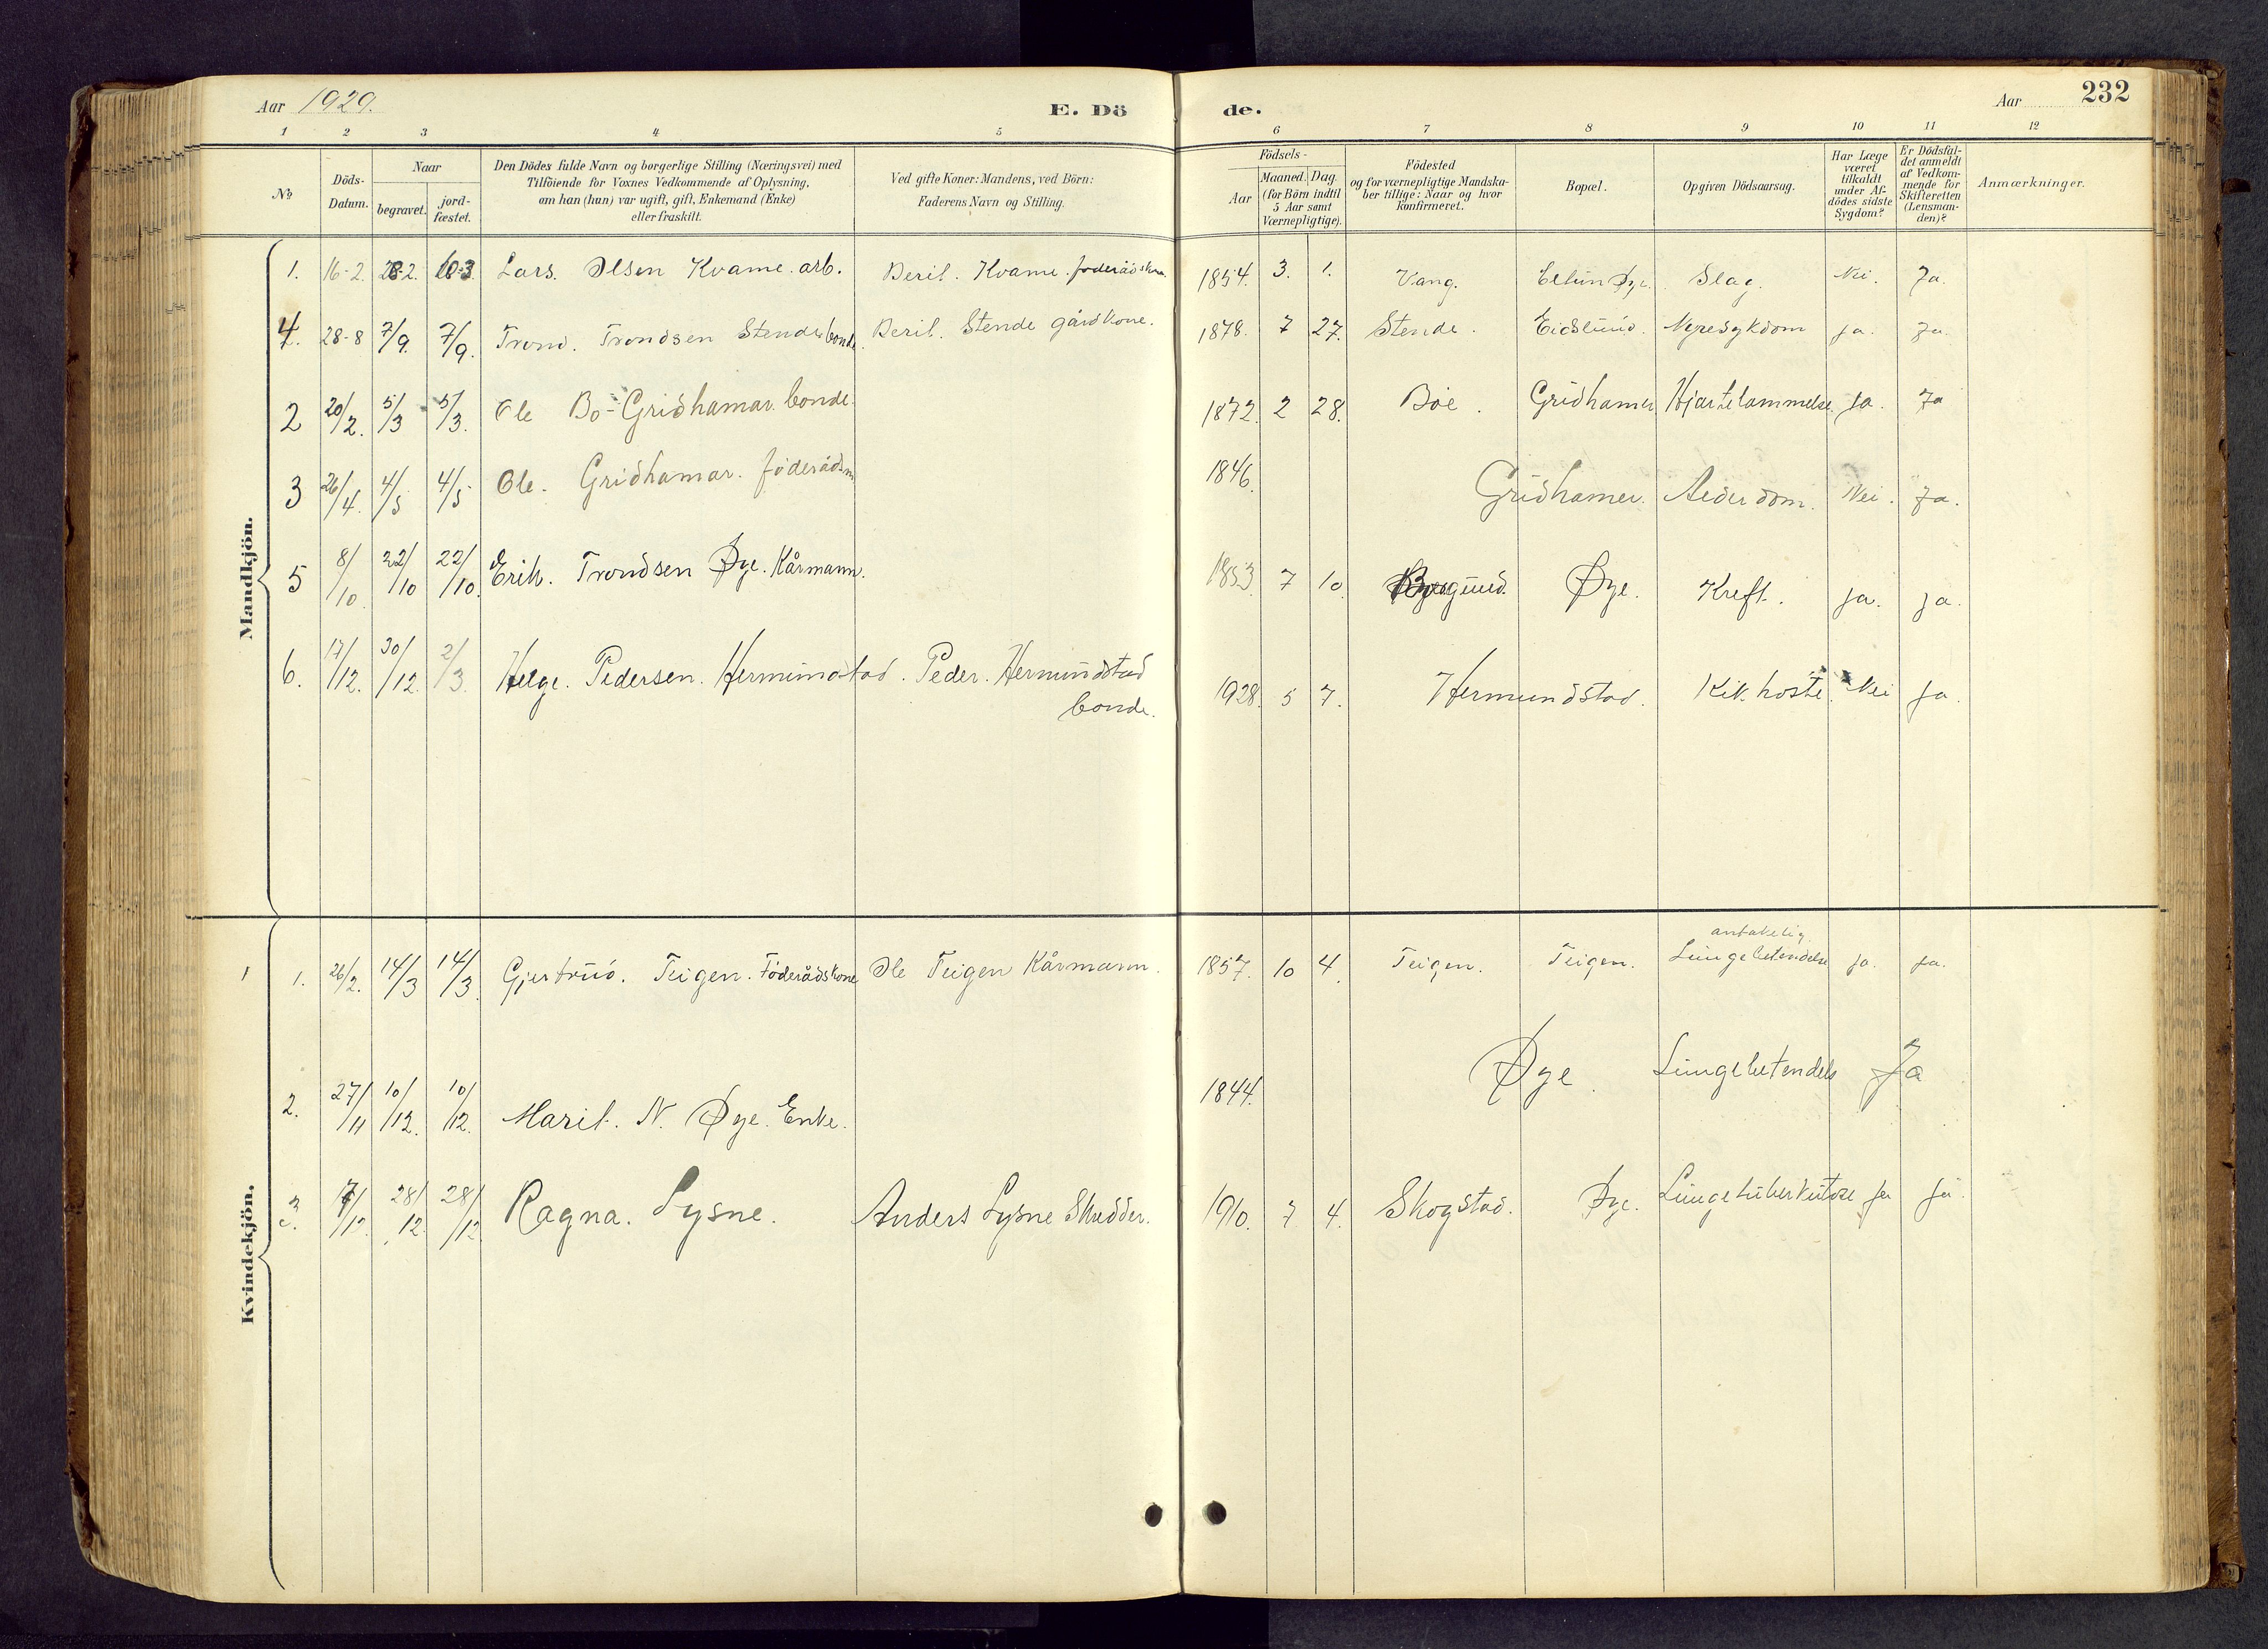 Aar 1929. E. Dö de. Aar 232
1 2 3 4 5 6 7 8 9 10 11 12
No.
Döds-Datum.
Naar
begravet.
jord-fæstet.
Den Dödes fulde Navn og borgerlige Stilling (Næringsvei) med
Tilföiende for Voxnes Vedkommende af Oplysning,
om han (hun) var ugift, gift, Enkemand (Enke)
eller fraskilt.
Ved gifte Koner: Mandens, ved Börn:
Faderens Navn og Stilling.
Födsels-
Aar
Maaned. Dag
(for Börn indtil
5 Aar samt
Værnepligtige).
Födested
og for værnepligtige Mandska-
ber tillige: Naar og hvor
konfirmeret.
Bopæl.
Opgiven Dödsaarsag.
Har Læge
været
tilkaldt
under Af-
dödes sidste
Sygdom?
Er Dödsfal-
det anmeldt
af Vedkom-
mende for
Skifteretten
(Lensman-
den)?
Anmærkninger.
Mandkjön.
1. 16-2. 28-2. 10-3. Lars. Olsen Kvame. arb. Berit. Kvame. föderådskone. 1854. 3. 1. Vang. Øye. Slag. Nei. Ja.
4. 28-8 7/9. 7/9. Trond. Trondsen Stende bonde. Berit. Stende gårdkone. 1878. 7 27. Stende. Eidslund. Nyresykdom ja. Ja.
2 20/2. 5/3 5/3. Ole Bö-Gridhamar. bonde. 1872. 2 28. Böe. Gridhamer Hjartelammelse. Ja. Ja
3 26/4. 4/5 4/5 Ole. Gridhamar. föderådsm 1846. Gridhamer. Alderdom. Nei. Ja.
5 8/10. 22/10 22/10. Erik. Trondsen Øye. Kårmann. 1853. 7 10. Borgund. Øye. Kreft. ja. ja.
6. 17/12. 30/12. 2/3. Helge. Pedersen. Hermundstad. Peder. Hermundstad
bonde. 1928. 5 7. Hermundstad. Kikhoste. Nei Ja.
Kvindekjön.
1 1. 26/2. 14/3 14/3. Gjertrud. Teigen. Föderådskone Ole Teigen Kårmann. 1857. 10 4. Teigen. Teigen. antakelig
Lungebetendelse ja. ja.
2. 27/11 10/12. 10/12. Marit. N. Øye. Enke. 1844. Øye. Lungebetendels Ja
3. 17/12. 28/12. 28/12 Ragna. Lysne. Anders Lysne Skredder. 1910. 7 4. Skogstad. Øye. Lungetuberkulose ja ja.